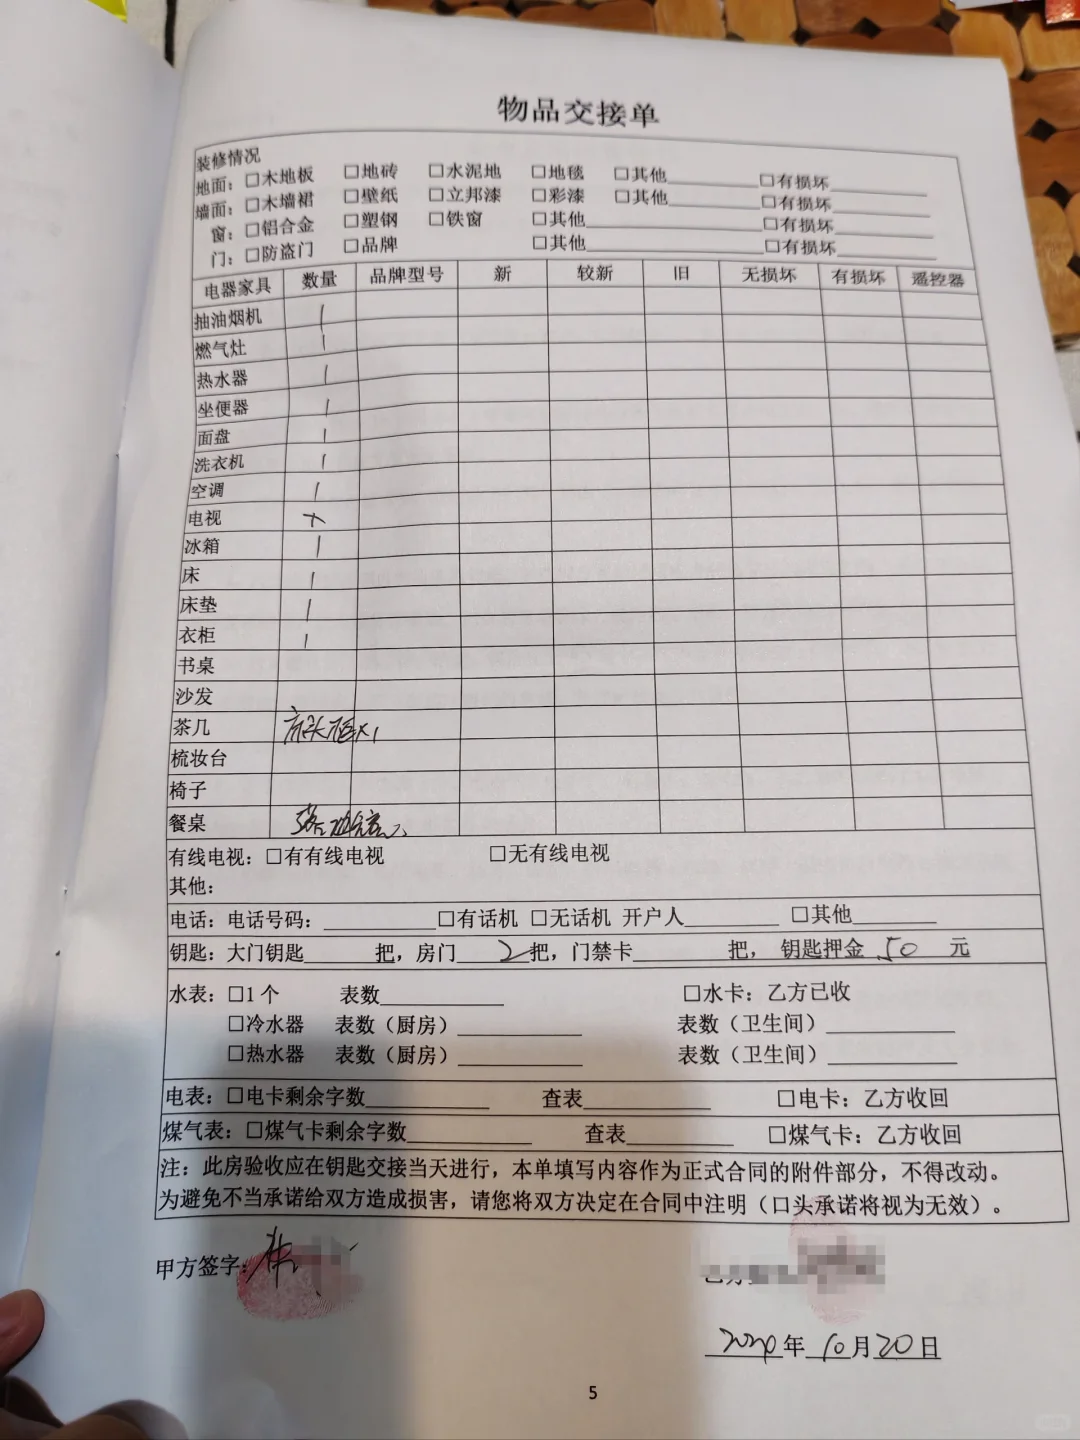 物品交接单
装修情况
地面：□木地板 □地砖 □水泥地 □地毯 □其他________ □有损坏________
墙面：□木墙裙 □壁纸 □立邦漆 □彩漆 □其他________ □有损坏________
窗：□铝合金 □塑钢 □铁窗 □其他________ □有损坏________
门：□防盗门 □品牌 □其他________ □有损坏________
电器家具 数量 品牌型号 新 较新 旧 无损坏 有损坏 遥控器
抽油烟机 1
燃气灶 1
热水器 1
坐便器 1
面盘 1
洗衣机 1
空调 1
电视 ×
冰箱 1
床 1
床垫 1
衣柜 1
书桌
沙发
茶几 床头柜×1
梳妆台
椅子
餐桌
有线电视：□有有线电视 □无有线电视
其他：
电话：电话号码：________ □有话机 □无话机 开户人________ □其他________
钥匙：大门钥匙________把，房门 2 把，门禁卡________把，钥匙押金 50 元
水表：□1个 表数________ □水卡：乙方已收
□冷水器 表数（厨房）________ 表数（卫生间）________
□热水器 表数（厨房）________ 表数（卫生间）________
电表：□电卡剩余字数________ 查表________ □电卡：乙方收回
煤气表：□煤气卡剩余字数________ 查表________ □煤气卡：乙方收回
注：此房验收应在钥匙交接当天进行，本单填写内容作为正式合同的附件部分，不得改动。
为避免不当承诺给双方造成损害，请您将双方决定在合同中注明（口头承诺将视为无效）。
甲方签字：
2020年10月20日
5